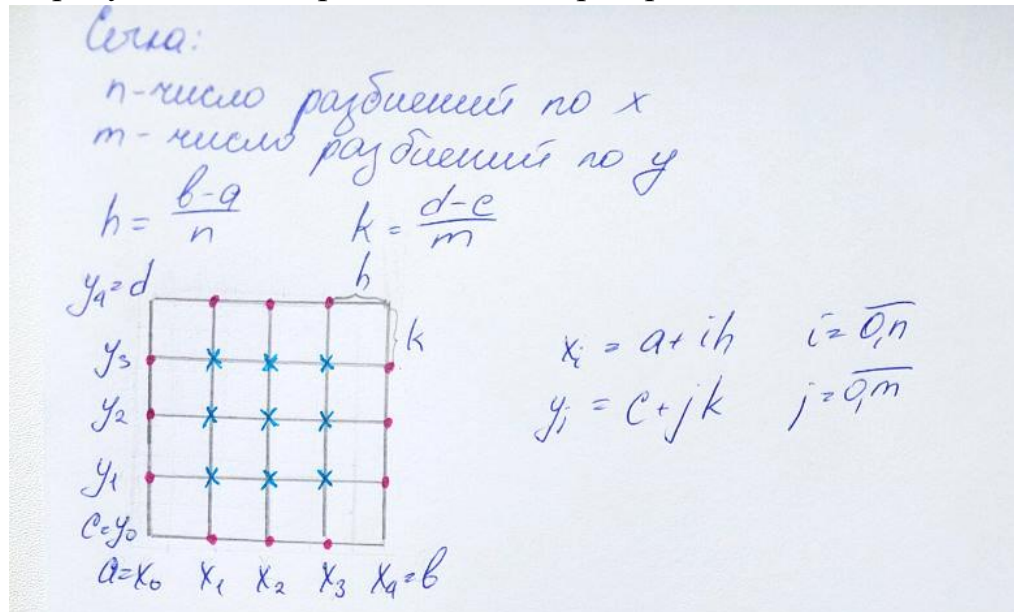 Сетка:
n - число разбиений по x
m - число разбиений по y
h = (b-a)/n k = (d-c)/m
y₄ = d h
k
y₃
y₂
y₁
c = y₀
a = x₀ x₁ x₂ x₃ x₄ = b
xᵢ = a + ih i = 0,n
yⱼ = c + jk j = 0,m